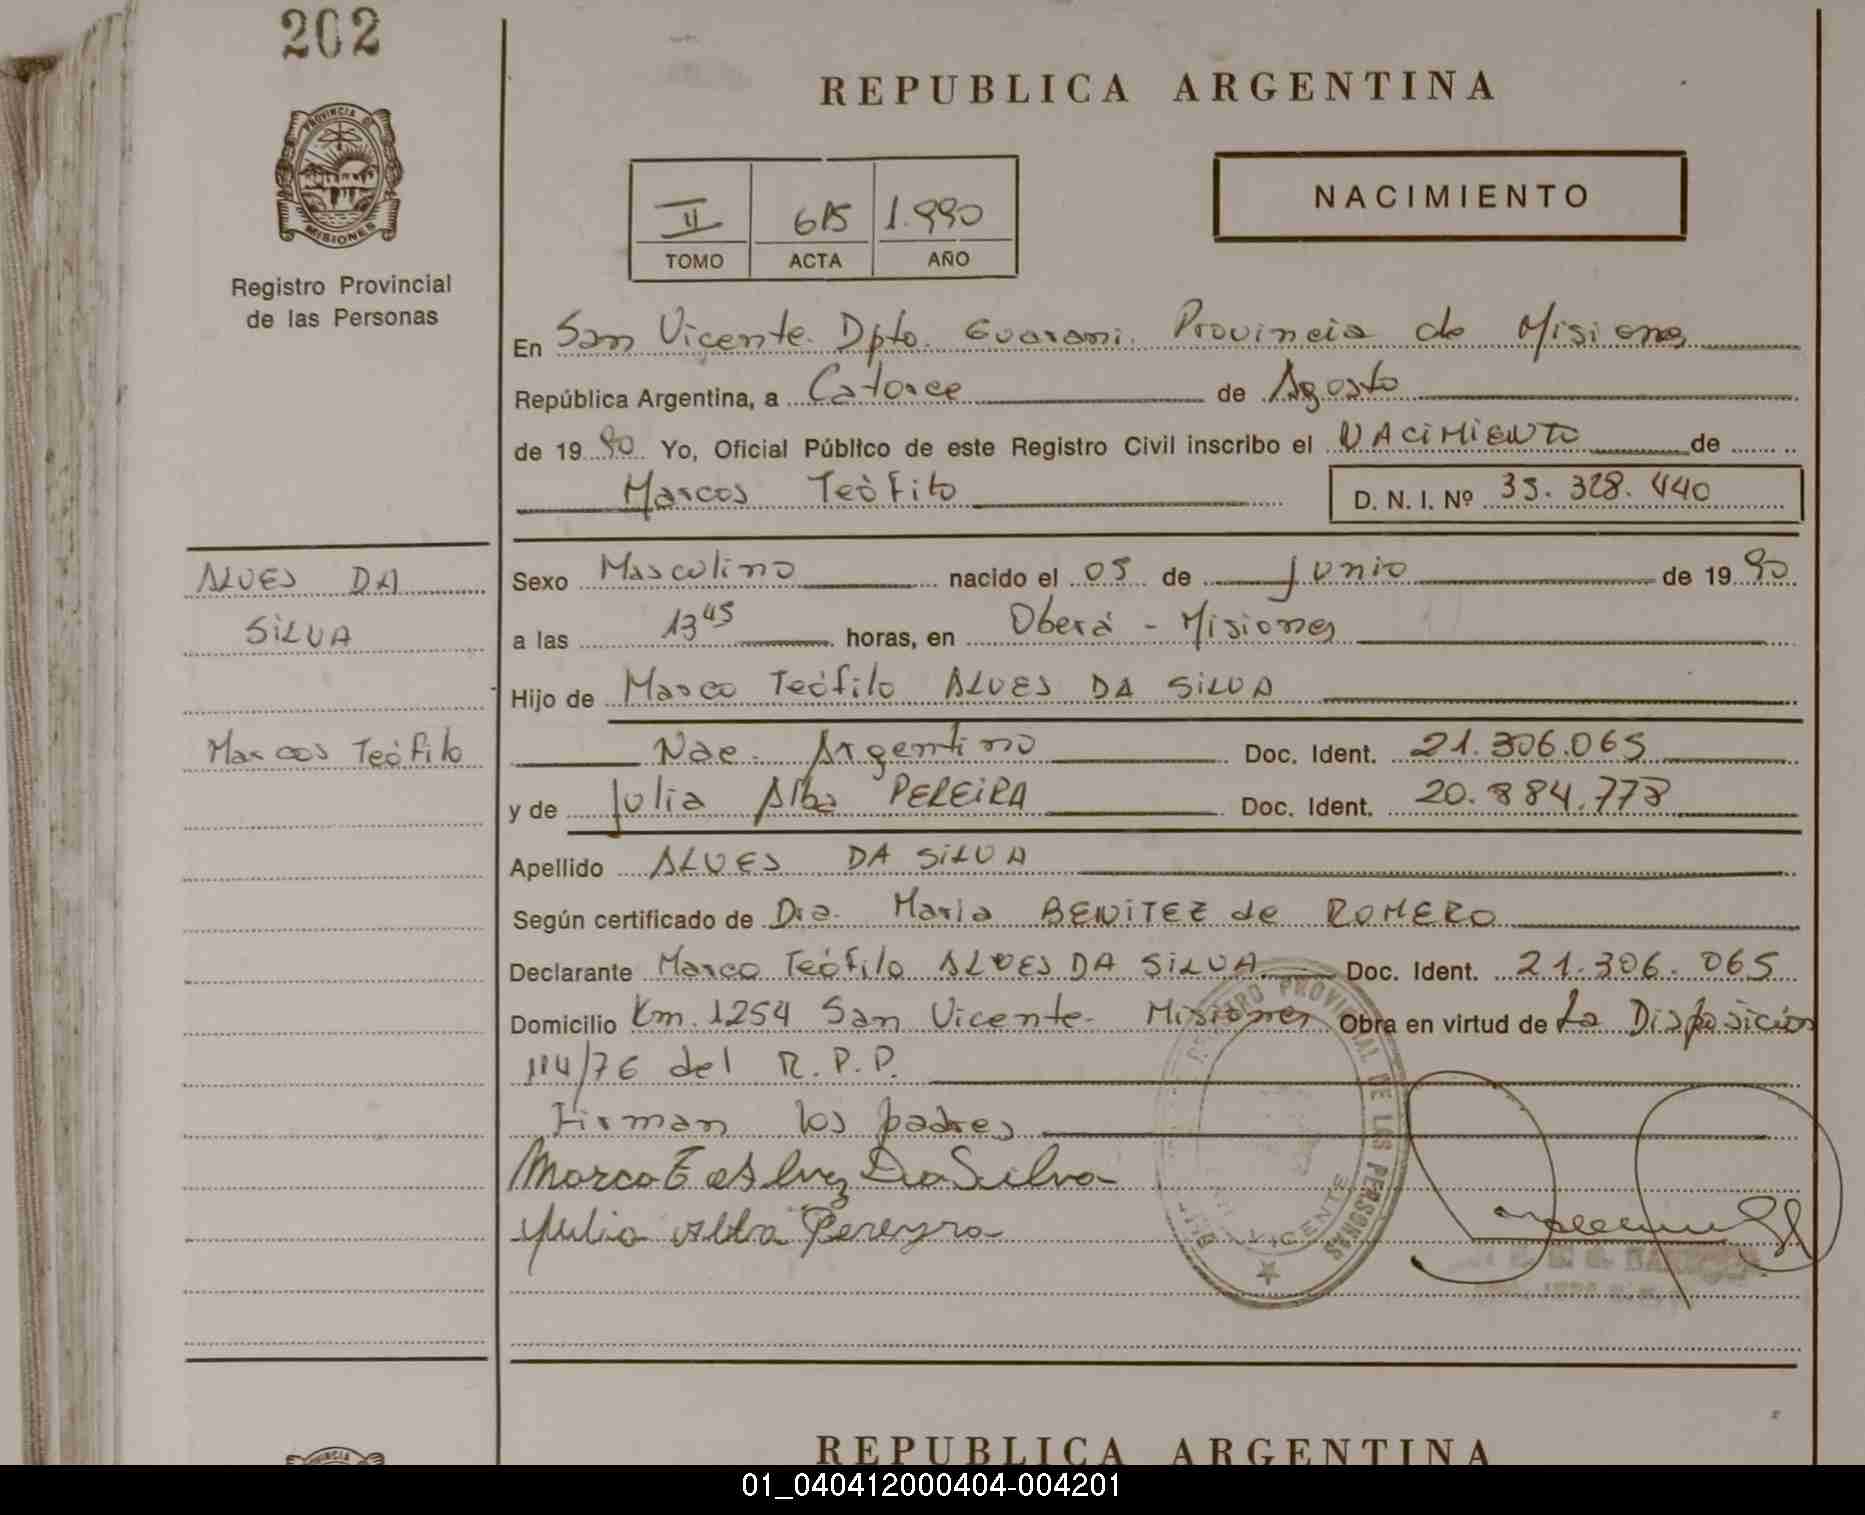 202
PROVINCIA DE
MISIONES
Registro Provincial
de las Personas
REPUBLICA ARGENTINA
II 615 1.990
TOMO ACTA AÑO
NACIMIENTO
En San Vicente. Dpto. Guarani. Provincia de Misiones
República Argentina, a Catorce de Agosto
de 19 90 Yo, Oficial Público de este Registro Civil inscribo el NACIMIENTO de
Marcos Teófilo D. N. I. Nº 35.328.440
ALVES DA
SILVA
Marcos Teófilo
Sexo Masculino nacido el 05 de Junio de 19 90
a las 13 45 horas, en Oberá - Misiones
Hijo de Marco Teófilo ALVES DA SILVA
Nac. Argentino Doc. Ident. 21.306.065
y de Julia Alba PEREIRA Doc. Ident. 20.884.778
Apellido ALVES DA SILVA
Según certificado de Dra. Maria BENITEZ de ROMERO
Declarante Marco Teófilo ALVES DA SILVA Doc. Ident. 21.306.065
Domicilio Km. 1254 San Vicente - Misiones Obra en virtud de La Disposición
114/76 del R.P.P.
Firman los padres
Marco T. Alvez Da Silva
Julia Alba Pereyra
REGISTRO PROVINCIAL DE LAS PERSONAS
VICENTE
REPUBLICA ARGENTINA
PROVINCIA
01_040412000404-004201